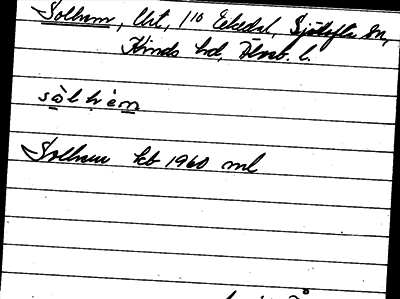 Solhem, lht, 1¹⁰ Ekedal, Sjötofta sn,
Kinds hd, Älvsb. l.
sòlhèm
Solhem kb 1960 ml